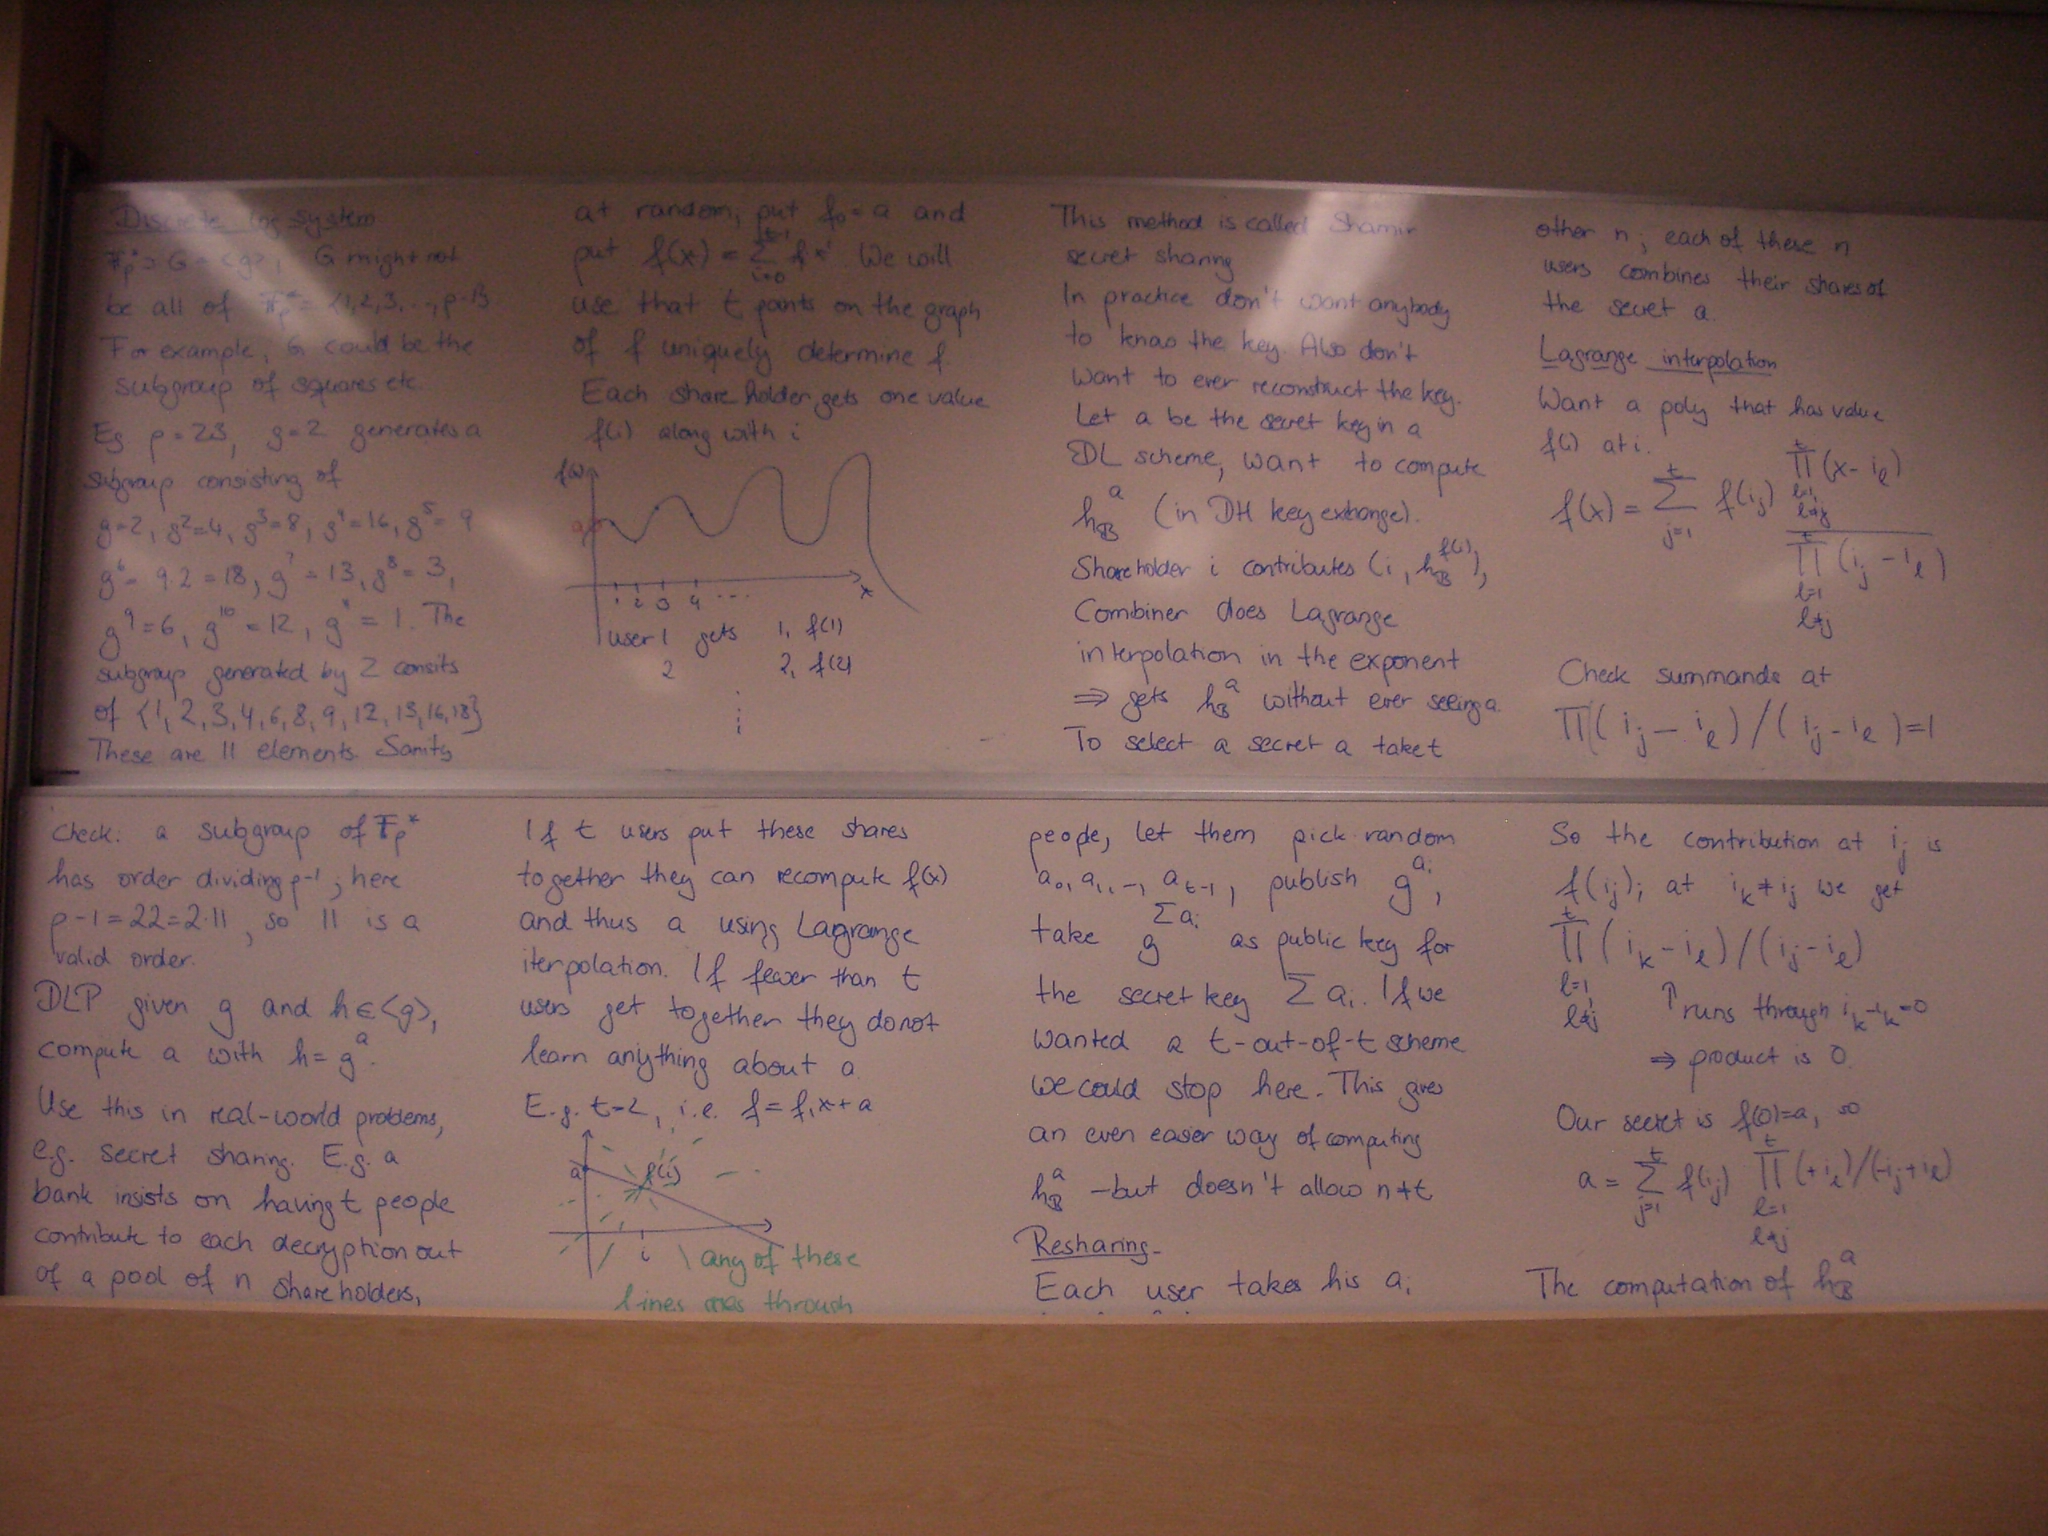 Discrete log system
F_p* ⊃ G = <g>, G might not
be all of F_p* = {1,2,3,...,p-1}
For example, G could be the
subgroup of squares etc.
Eg p=23, g=2 generates a
subgroup consisting of
g=2, g^2=4, g^3=8, g^4=16, g^5=9
g^6=9·2=18, g^7=13, g^8=3,
g^9=6, g^10=12, g^11=1. The
subgroup generated by 2 consits
of {1,2,3,4,6,8,9,12,13,16,18}
These are 11 elements. Sanity
check: a subgroup of F_p*
has order dividing p-1; here
p-1=22=2·11, so 11 is a
valid order.
DLP given g and h∈<g>,
compute a with h=g^a.
Use this in real-world problems,
e.g. secret sharing. E.g. a
bank insists on having t people
contribute to each decryption out
of a pool of n shareholders,
at random, put f_0=a and
put f(x) = Σ_{i=0}^{t-1} f_i x^i We will
use that t points on the graph
of f uniquely determine f
Each share holder gets one value
f(i) along with i
f(x)
a
1 2 3 4 ... x
user 1 gets 1, f(1)
2 2, f(2)
⋮
If t users put these shares
together they can recompute f(x)
and thus a using Lagrange
iterpolation. If fewer than t
users get together they do not
learn anything about a
E.g. t=2, i.e. f=f_1x+a
a f(i)
i
any of these
lines through
This method is called Shamir
secret sharing
In practice don't want anybody
to know the key. Also don't
want to ever reconstruct the key.
Let a be the secret key in a
DL scheme, want to compute
h_B^a (in DH key exchange).
Shareholder i contributes (i, h_B^{f(i)}),
Combiner does Lagrange
interpolation in the exponent
⇒ gets h_B^a without ever seeing a.
To select a secret a take t
people, let them pick random
a_0, a_1, ..., a_{t-1}, publish g^{a_i},
take g^{Σa_i} as public key for
the secret key Σ a_i. If we
wanted a t-out-of-t scheme
we could stop here. This gives
an even easier way of computing
h_B^a - but doesn't allow n≠t
Resharing
Each user takes his a_i
other n; each of these n
users combines their shares of
the secret a.
Lagrange interpolation
Want a poly that has value
f(i) at i.
f(x) = Σ_{j=1}^{t} f(i_j) Π_{l=1, l≠j}^{t} (x-i_l) / Π_{l=1, l≠j}^{t} (i_j-i_l)
Check summands at
Π(i_j-i_l)/(i_j-i_l)=1
So the contribution at i_j is
f(i_j); at i_k≠i_j we get
Π_{l=1, l≠j}^{t} (i_k-i_l)/(i_j-i_l)
↑ runs through i_k-i_k=0
⇒ product is 0.
Our secret is f(0)=a, so
a = Σ_{j=1}^{t} f(i_j) Π_{l=1, l≠j}^{t} (+i_l)/(-i_j+i_l)
The computation of h_B^a